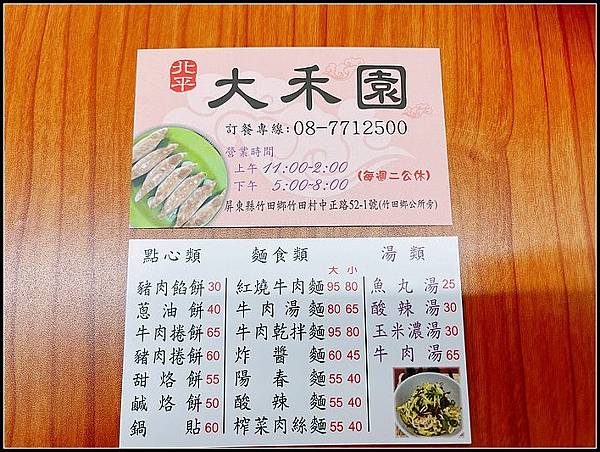 北平
大禾園
訂餐專線:08-7712500
營業時間
上午 11:00-2:00
下午 5:00-8:00
(每週二公休)
屏東縣竹田鄉竹田村中正路52-1號(竹田鄉公所旁)
點心類
豬肉餡餅30
蔥油餅40
牛肉捲餅65
豬肉捲餅60
甜烙餅55
鹹烙餅50
鍋貼60
麵食類
大 小
紅燒牛肉麵95 80
牛肉湯麵80 65
牛肉乾拌麵95 80
炸醬麵60 45
陽春麵55 40
酸辣麵55 40
榨菜肉絲麵55 40
湯類
魚丸湯25
酸辣湯30
玉米濃湯30
牛肉湯65